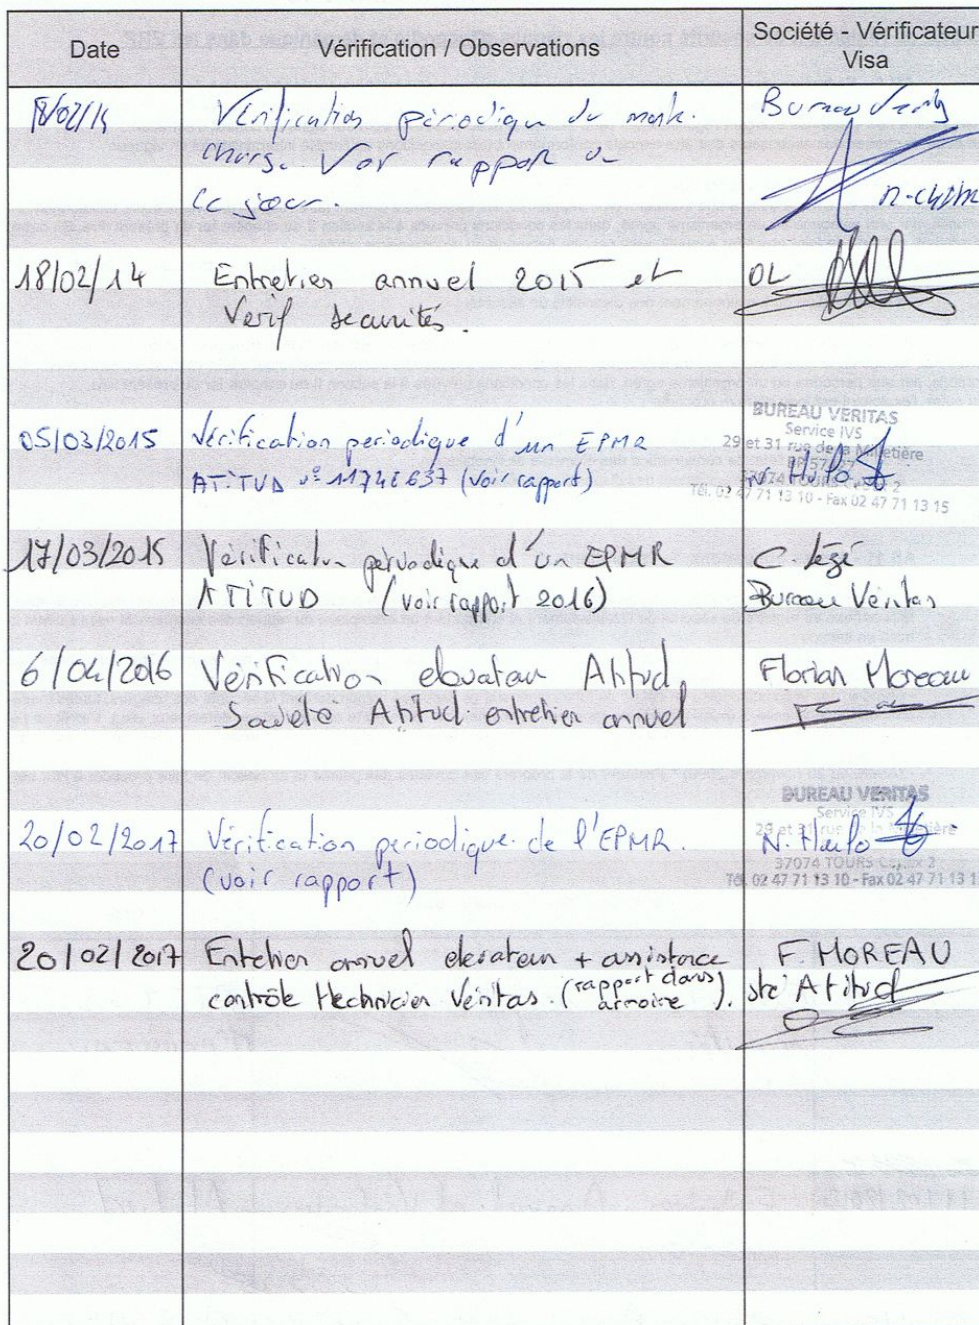 Date
Vérification / Observations
Société - Vérificateur
Visa
18/02/14
Vérification périodique du monte
charge. Voir rapport de
ce jour.
Bureau Veritas
18/02/14
Entretien annuel 2015 et
Vérif sécurités.
OL
05/03/2015
Vérification periodique d'un EPMR
ATITUD n° 1174E637 (voir rapport)
BUREAU VERITAS
Service IVS
29 et 31 rue de la Milletière
37074 TOURS Cedex 2
Tél. 02 47 71 13 10 - Fax 02 47 71 13 15
17/03/2015
Vérification périodique d'un EPMR
ATITUD (voir rapport 2016)
Bureau Véritas
6/04/2016
Vérification elevateur Atitud
Société Atitud entretien annuel
Florian Moreau
20/02/2017
Vérification periodique de l'EPMR.
(voir rapport)
BUREAU VERITAS
Service IVS
29 et 31 rue de la Milletière
37074 TOURS Cedex 2
Tél. 02 47 71 13 10 - Fax 02 47 71 13 1
20/02/2017
Entretien annuel elevateur + assistance
contrôle technicien Véritas. (rapport dans armoire).
F. MOREAU
sté Atitud